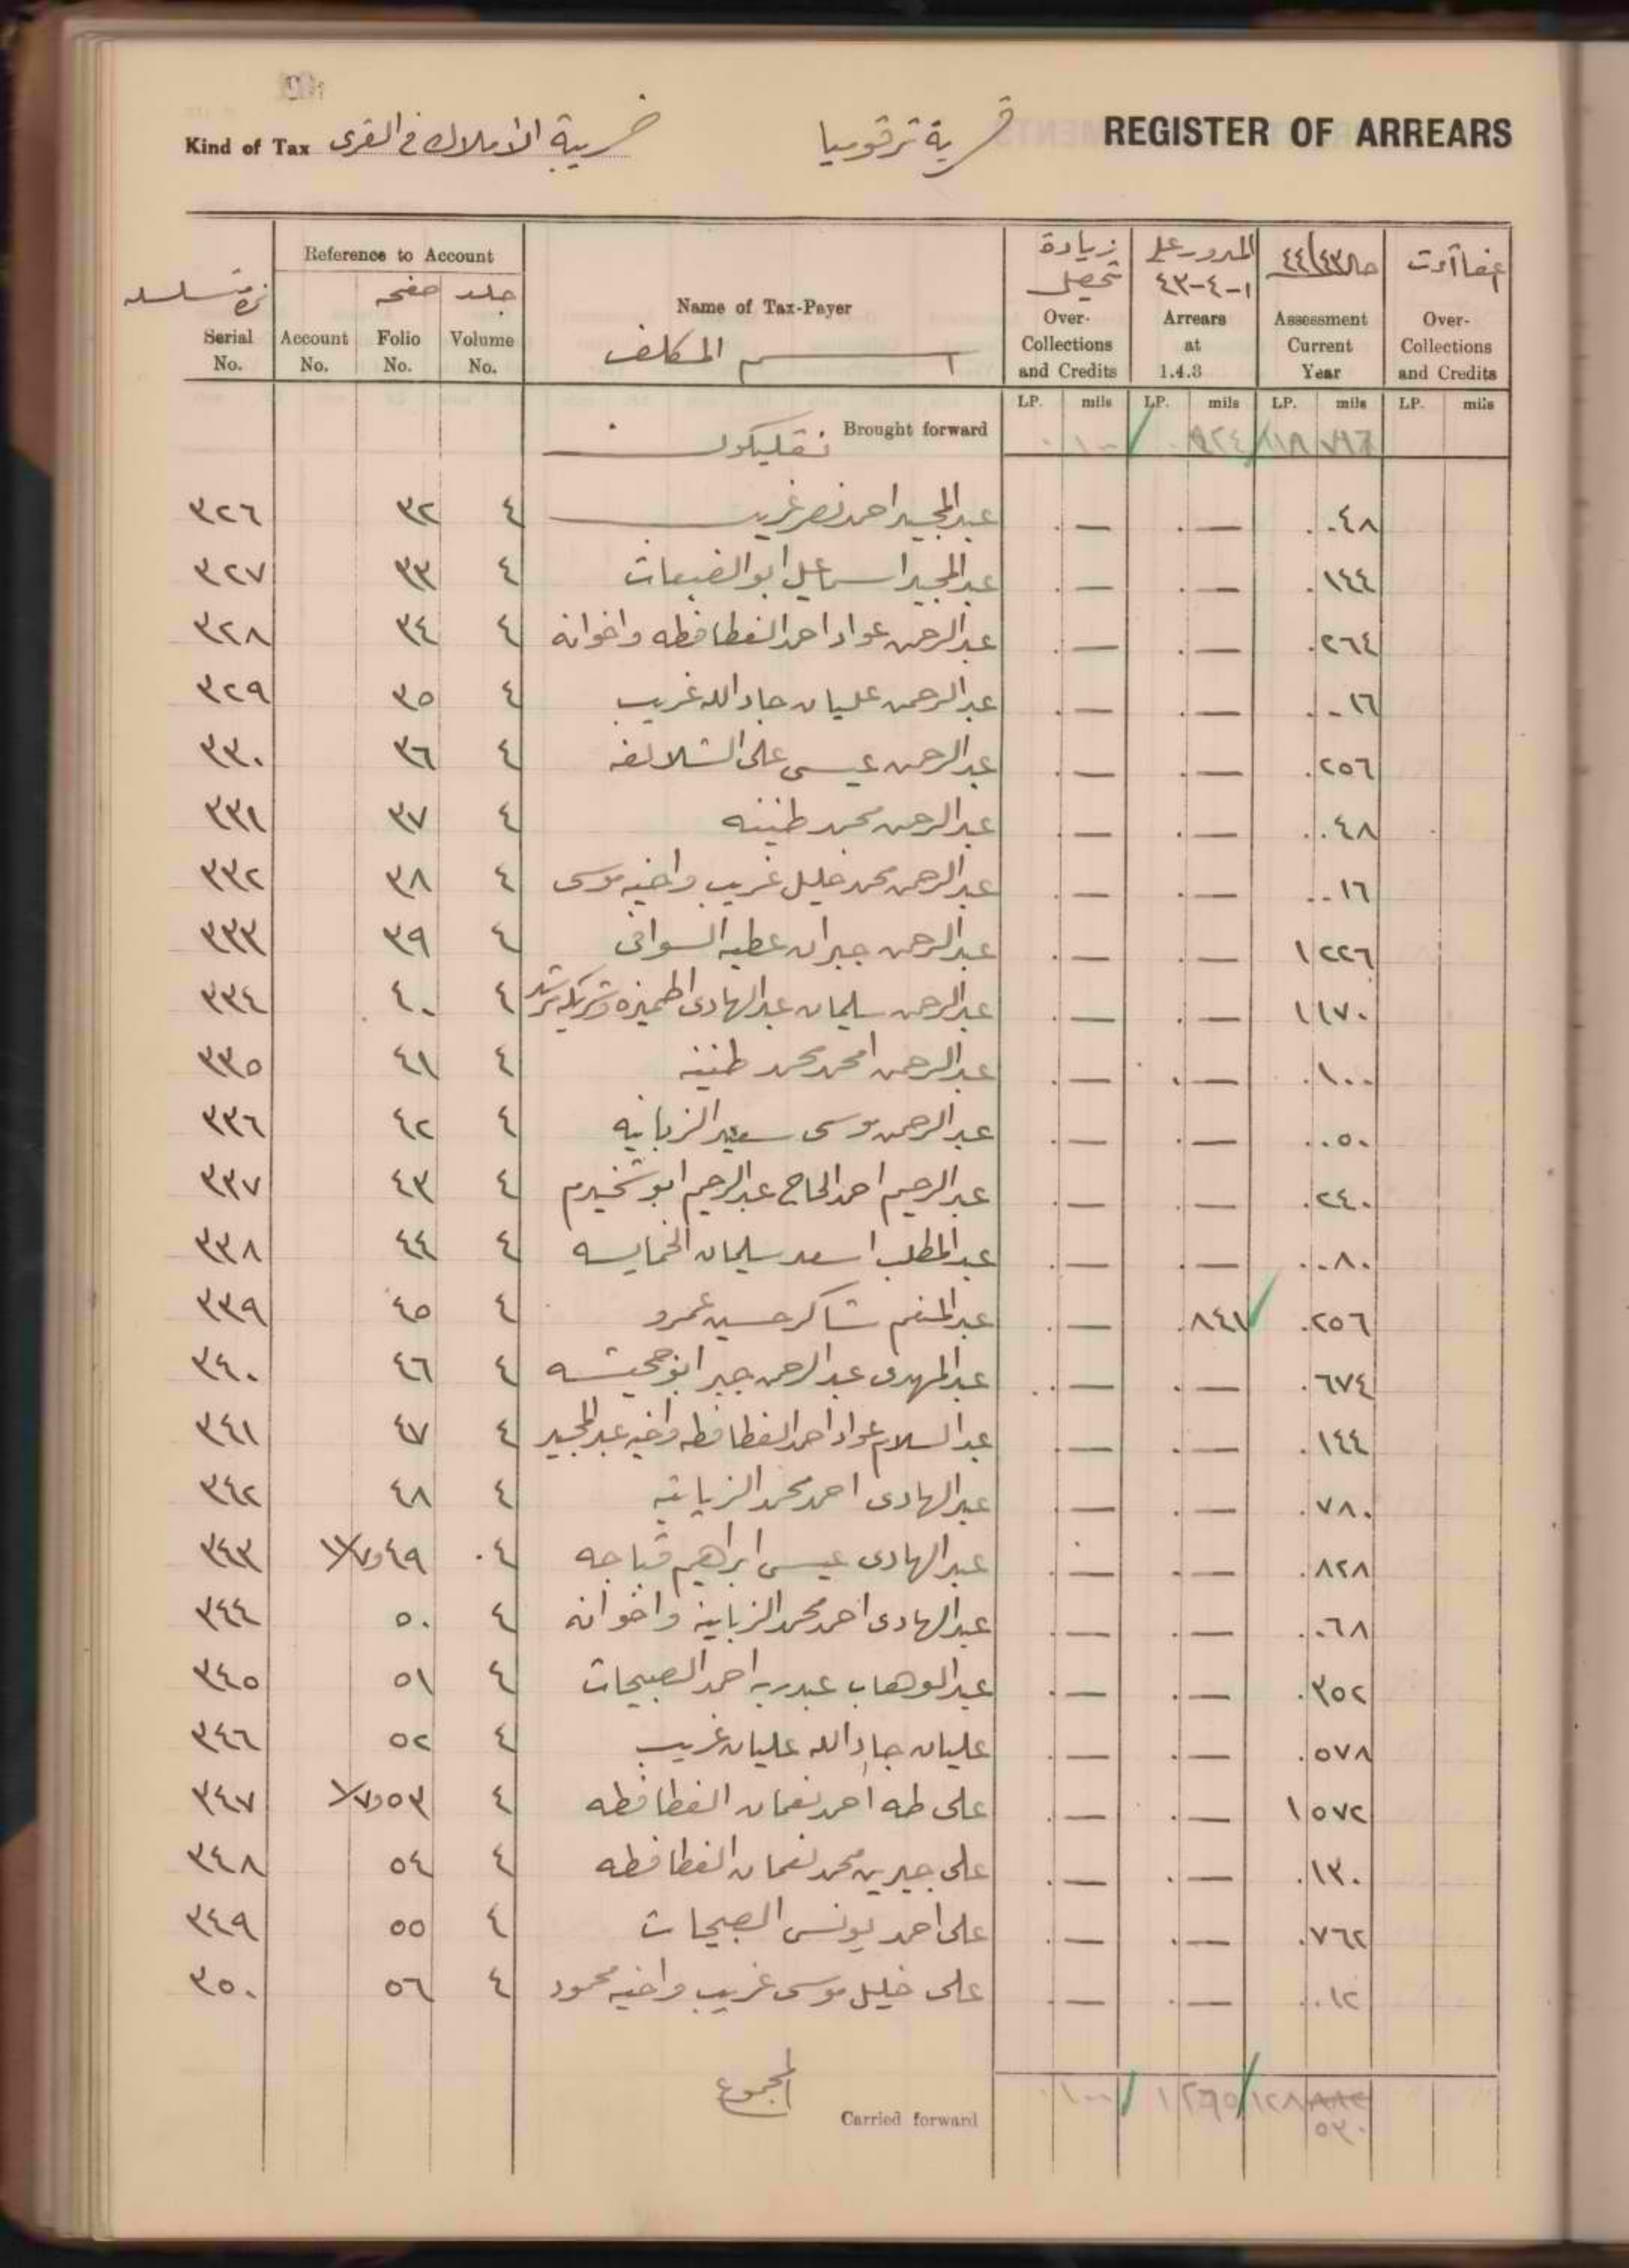 Kind of Tax ضريبة الأملاك في القرى قرية ترقوميا REGISTER OF ARREARS
نمرة متسلسله Serial No.
Reference to Account
Account No. صفحه Folio No. جلد Volume No.
Name of Tax-Payer
اسم المكلف
زيادة تحصيل Over-Collections and Credits
المدور على ١-٤-٤٣ Arrears at 1.4.3
٤٤/٤٣ Assessment Current Year
Over-Collections and Credits
LP. mils LP. mils LP. mils LP. mils
Brought forward ٠ ١٠٠ ١١٨
٣٢٦ ٣٢ ٤ عبد المجيد احمد نصر غريب . — . — . ٠٤٨
٣٢٧ ٣٣ ٤ عبد المجيد اسماعيل ابو الضبعات . — . — . ١٤٤
٣٢٨ ٣٤ ٤ عبد الرحمن عواد احمد الفطافطه واخوانه . — . — . ٢٦٤
٣٢٩ ٣٥ ٤ عبد الرحمن عليان جاد الله غريب . — . — . ٠١٦
٣٣٠ ٣٦ ٤ عبد الرحمن عيسى على الشلالفه . — . — . ٢٥٦
٣٣١ ٣٧ ٤ عبد الرحمن محمد طنينه . — . — . ٠٤٨
٣٣٢ ٣٨ ٤ عبد الرحمن محمد خليل غريب واخيه موسى . — . — . ٠١٦
٣٣٣ ٣٩ ٤ عبد الرحمن جبران عطيه . — . — ١ ٢٢٦
٣٣٤ ٤٠ ٤ عبد الرحمن سليمان عبد الهادى . — . — ١ ١٧٠
٣٣٥ ٤١ ٤ عبد الرحمن امحمد محمد طنينه . — . — . ١٠٠
٣٣٦ ٤٢ ٤ عبد الرحمن موسى سعيد الزباينه . — . — . ٠٥٠
٣٣٧ ٤٣ ٤ عبد الرحيم احمد الحاج عبد الرحيم ابو شخيدم . — . — . ٢٤٠
٣٣٨ ٤٤ ٤ عبد المطلب اسعد سليمان الخمايسه . — . — . ٠٨٠
٣٣٩ ٤٥ ٤ عبد المنعم شاكر حسين عمرو . — . ٨٤١ . ٢٥٦
٣٤٠ ٤٦ ٤ عبد المهدى عبد الرحمن جبر ابو جحيشه . — . — . ٦٧٤
٣٤١ ٤٧ ٤ عبد السلام عواد احمد الفطافطه واخيه عبد المجيد . — . — . ١٤٤
٣٤٢ ٤٨ ٤ عبد الهادى احمد محمد الزباينه . — . — . ٧٨٠
٣٤٣ ٤٩ ٤ عبد الهادى عيسى ابراهيم قباجه . — . — . ٨٢٨
٣٤٤ ٥٠ ٤ عبد الهادى احمد محمد الزباينه واخوانه . — . — . ٠٦٨
٣٤٥ ٥١ ٤ عبد الوهاب عبدربه احمد الصبيحات . — . — . ٣٥٢
٣٤٦ ٥٢ ٤ عليان جاد الله عليان غريب . — . — . ٥٧٨
٣٤٧ ٥٣ ٤ على طه احمد نعمان الفطافطه . — . — ١ ٥٧٢
٣٤٨ ٥٤ ٤ على جبرين محمد نعمان الفطافطه . — . — . ١٣٠
٣٤٩ ٥٥ ٤ على احمد يونس الصبيحات . — . — . ٧٦٢
٣٥٠ ٥٦ ٤ على خليل موسى غريب واخيه محمود . — . — . ٠١٢
المجموع Carried forward ٠ ١٠٠ ١ ١٢٨
٥٣٠